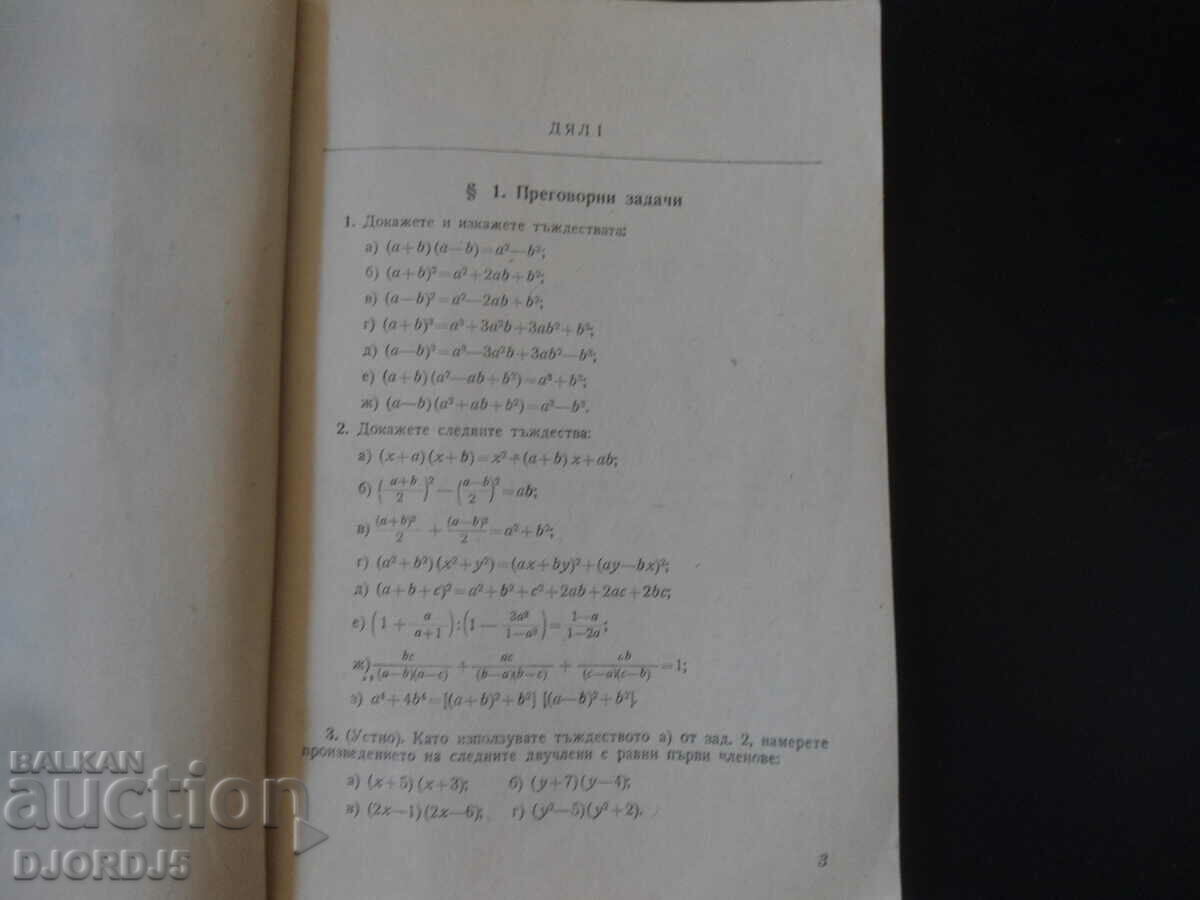 ДЯЛ I
§ 1. Преговорни задачи
1. Докажете и изкажете тъждествата:
а) (a+b)(a—b)=a²—b²;
б) (a+b)²=a²+2ab+b²;
в) (a—b)²=a²—2ab+b²;
г) (a+b)³=a³+3a²b+3ab²+b³;
д) (a—b)³=a³—3a²b+3ab²—b³;
е) (a+b)(a²—ab+b²)=a³+b³;
ж) (a—b)(a²+ab+b²)=a³—b³.
2. Докажете следните тъждества:
а) (x+a)(x+b)=x²+(a+b)x+ab;
б) ((a+b)/2)²—((a—b)/2)²=ab;
в) (a+b)²/2 + (a—b)²/2=a²+b²;
г) (a²+b²)(x²+y²)=(ax+by)²+(ay—bx)²;
д) (a+b+c)²=a²+b²+c²+2ab+2ac+2bc;
е) (1+ a/(a+1)):(1— 3a²/(1—a²))=(1—a)/(1—2a);
ж) bc/((a—b)(a—c)) + ac/((b—a)(b—c)) + ab/((c—a)(c—b))=1;
з) a⁴+4b⁴=[(a+b)²+b²] [(a—b)²+b²].
3. (Устно). Като използувате тъждеството а) от зад. 2, намерете
произведението на следните двучлени с равни първи членове:
а) (x+5)(x+3); б) (y+7)(y—4);
в) (2x—1)(2x—6); г) (y²—5)(y²+2).
3
BALKAN
auction
DJORDJ5